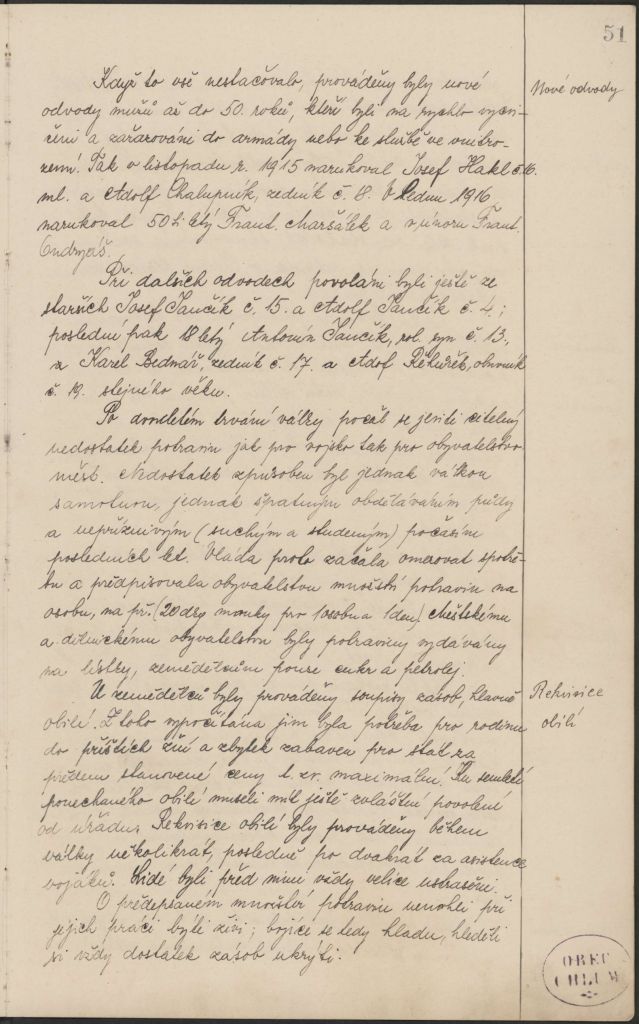 51
Když to vše nestačovalo, prováděny byly nové
Nové odvody
odvody mužů až do 50. roků, kteří byli na rychlo vycvi-
čeni a zařazováni do armády nebo ke službě ve vnitro-
zemí. Tak v listopadu r. 1915 narukoval Josef Hakl č.16.
ml. a Adolf Chalupník, zedník č. 8. V lednu 1916
narukoval 50ti letý Frant. Maršálek a v únoru Frant.
Ondryáš.
Při dalších odvodech povoláni byli ještě ze
starších Josef Jančík č. 15. a Adolf Jančík č. 4.;
poslední pak 18letý Antonín Jančík, rol. syn č. 13.,
a Karel Bednář, zedník č. 17. a Adof Řehůřek, obuvník
č. 19. stejného věku.
Po dvouletém trvání války počal se jeviti citelný
nedostatek potravin jak pro vojsko tak pro obyvatelstvo
měst. Nedostatek způsoben byl jednak válkou
samotnou, jednak špatným obděláváním půdy
a nepříznivým (suchým a studeným) počasím
posledních let. Vláda proto začala omezovat spotře-
bu a předpisovala obyvatelstvu množství potravin na
osobu, na př. (20 dkg mouky pro 1 osobu a 1 den) Městskému
a dělnickému obyvatelstvu byly potraviny vydávány
na lístky, zemědělcům pouze cukr a petrolej.
U zemědělců byly prováděny soupisy zásob, hlavně
Rekvisice
obilí. Z toho vypočítána jim byla potřeba pro rodinu
obilí
do příštích žní a zbytek zabaven pro stát za
předem stanovené ceny t. zv. maximální. Ku semletí
ponechaného obilí museli mít ještě zvláštní povolení
od úřadu. Rekvisice obilí byly prováděny během
války několikrát, posledně po dvakrát za asistence
vojáků. Lidé byli před nimi vždy velice ustrašeni.
O předepsaném množství potravin nemohli při
jejich práci býti živi; bojíce se tedy hladu, hleděli
si vždy dostatek zásob ukrýti.
OBEC
CHLUM